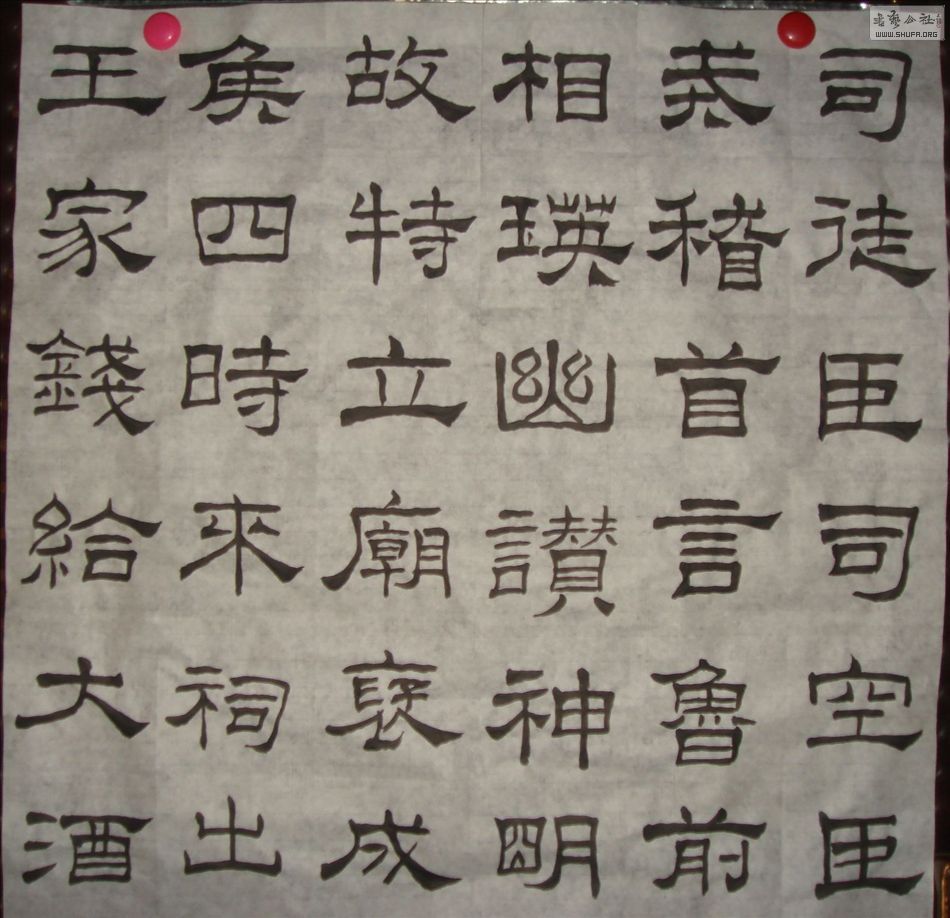 司徒臣司空臣
戒稽首言魯前
相瑛幽讃神明
故特立廟褒成
侯四時來祠出
王家錢給大酒
書藝公社
WWW.SHUFA.ORG